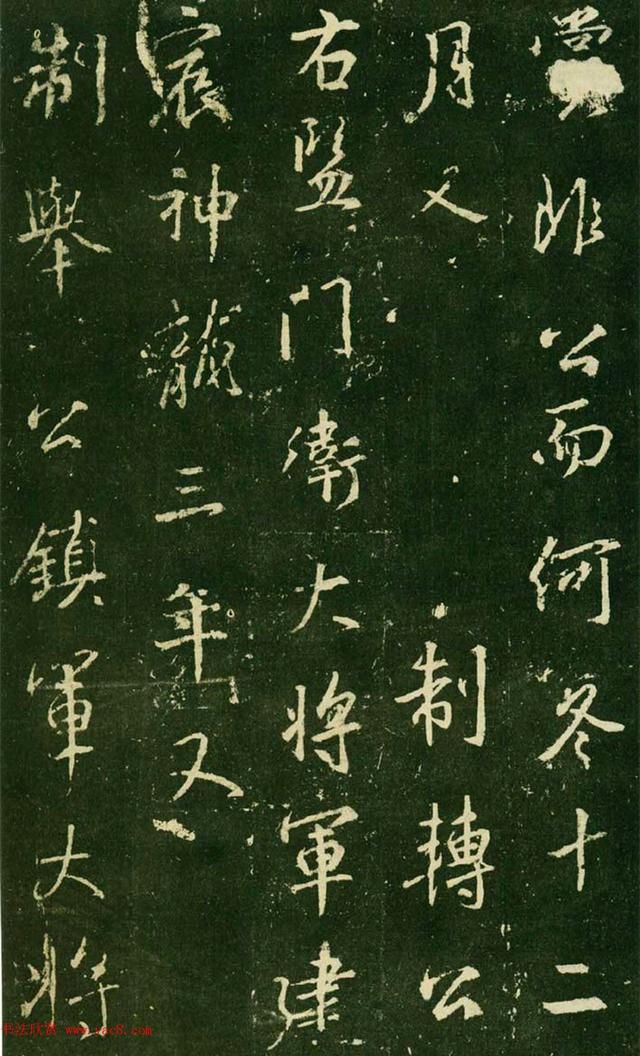 賞非公而何冬十二
月又 制轉公
右監門衛大將軍建
宸神龍三年又
制舉公鎮軍大將
书法欣赏 www.yac8.com